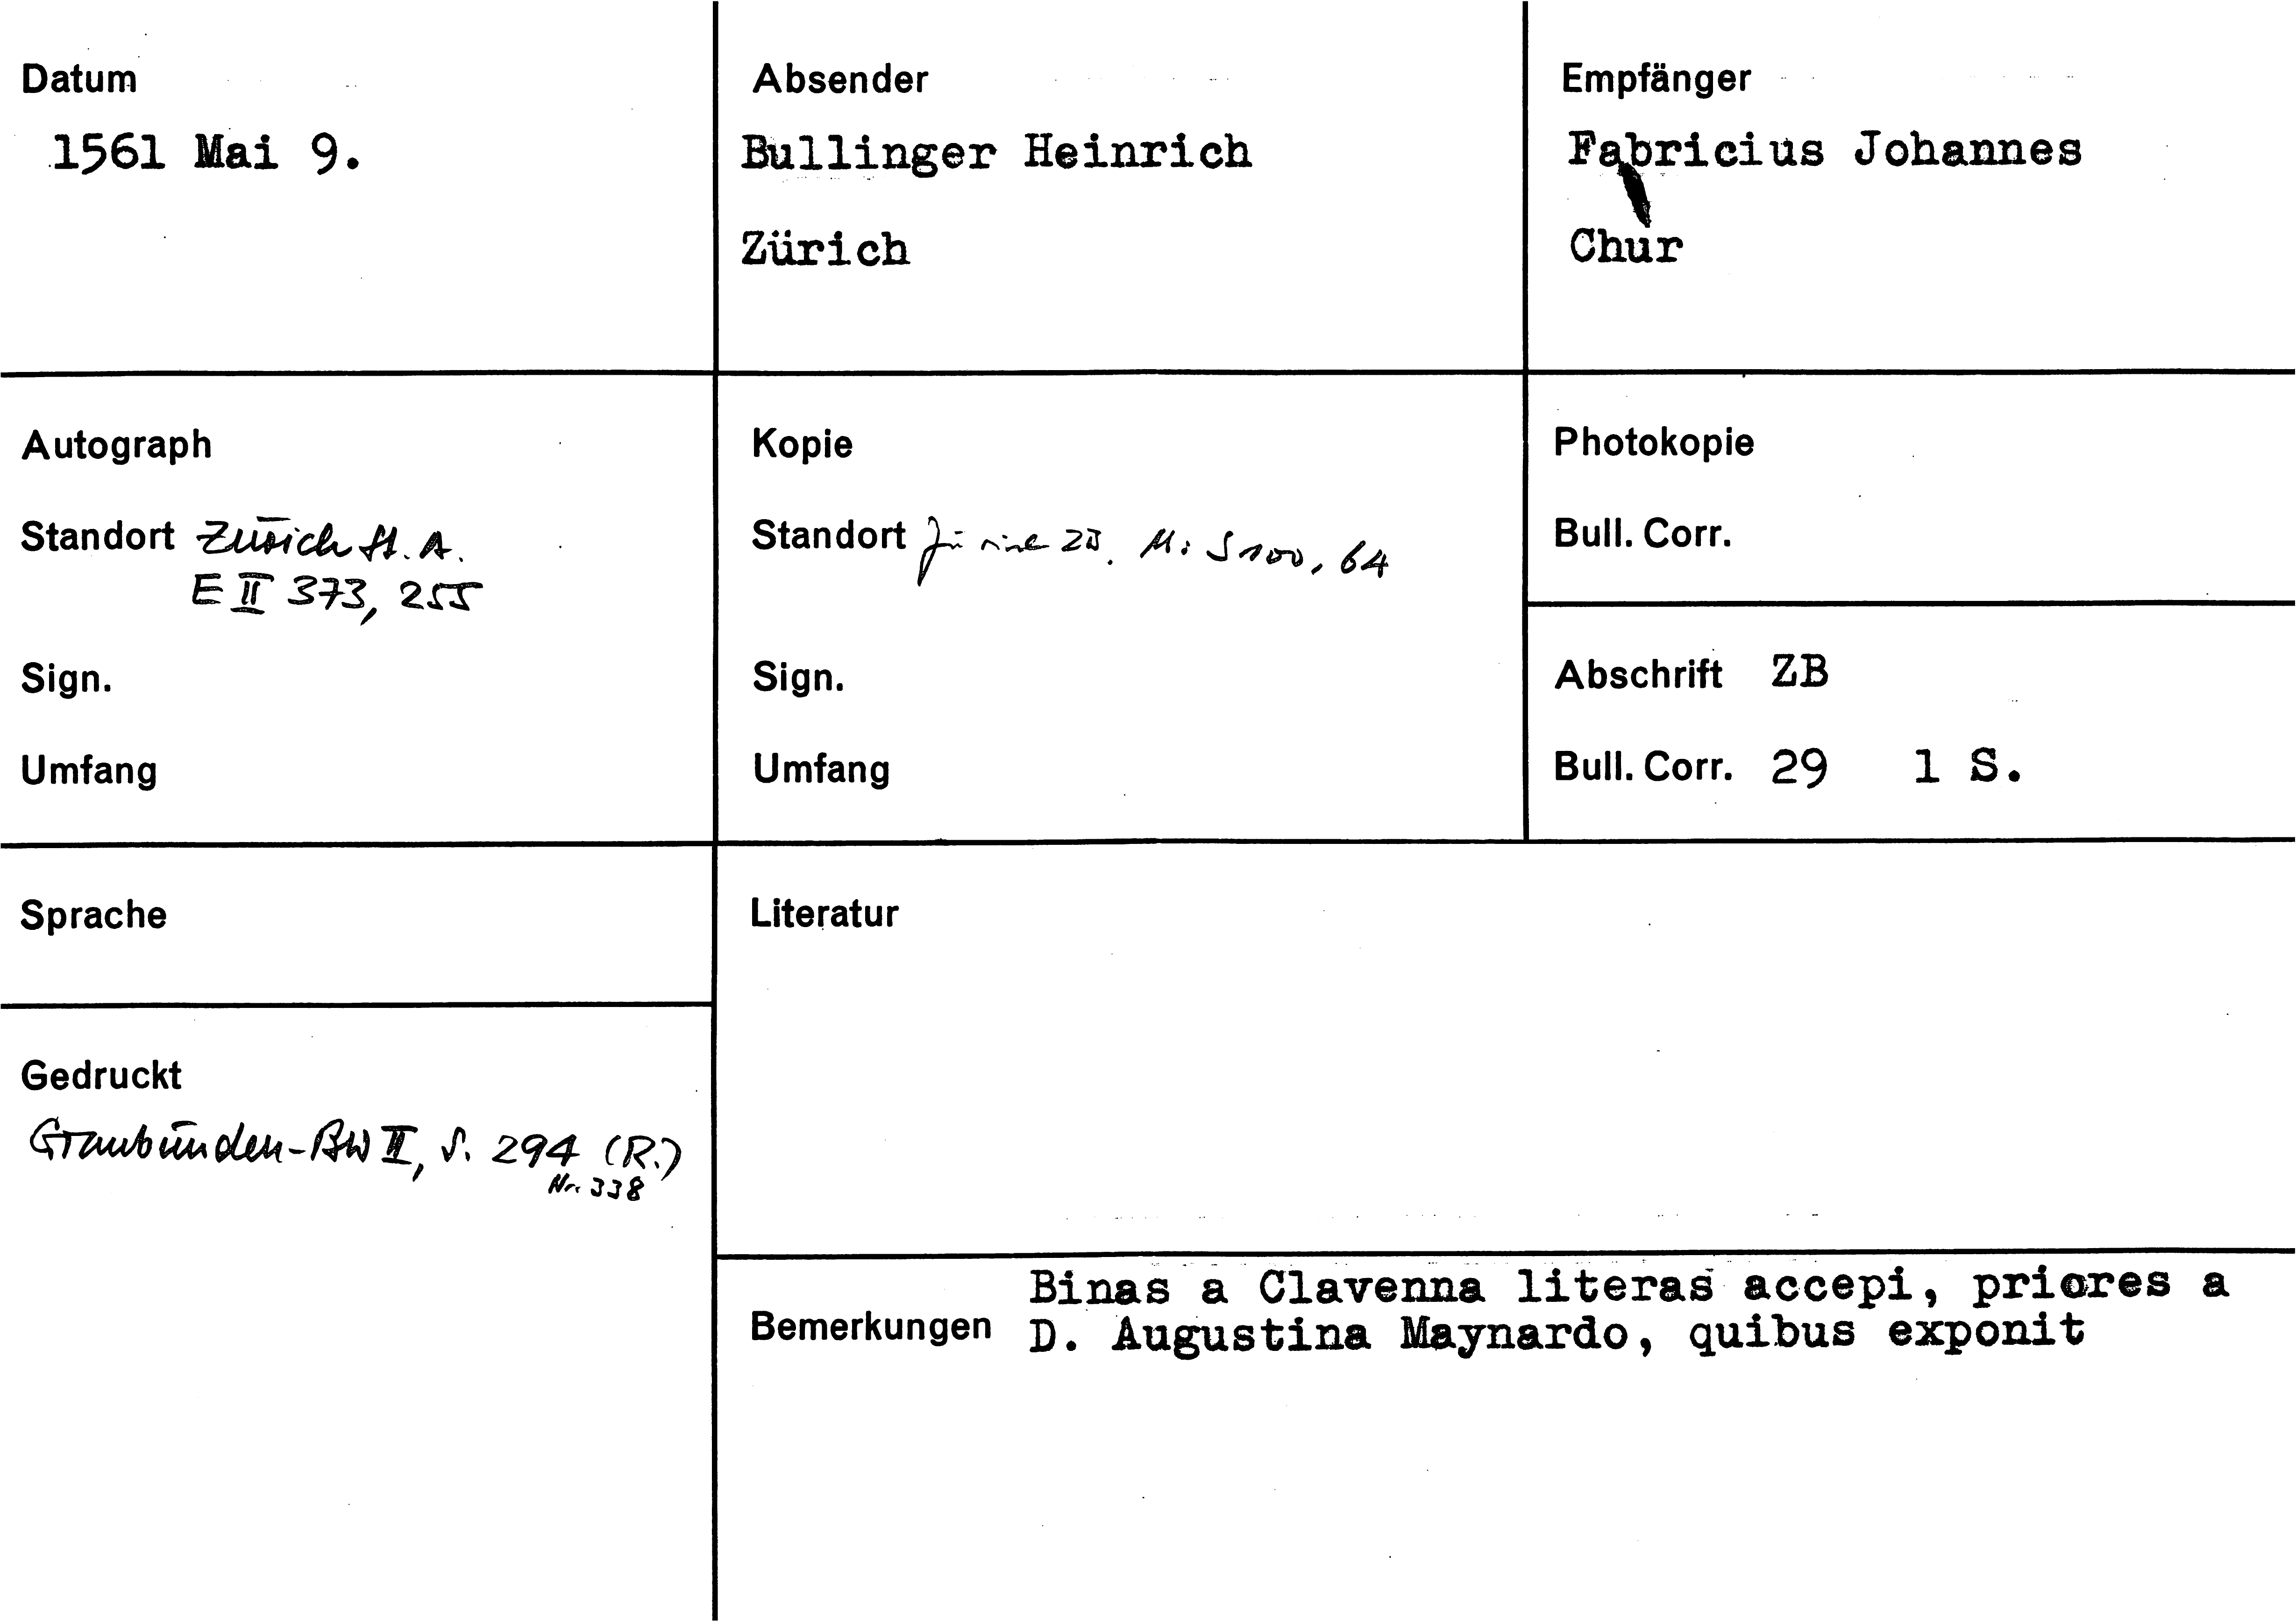 Datum
1561 Mai 9.
Absender
Bullinger Heinrich
Zürich
Empfänger
Fabricius Johannes
Chur
Autograph
Standort Zürich St. A.
E II 373, 255
Sign.
Umfang
Kopie
Standort Zürich ZB. Ms S 100, 64
Sign.
Umfang
Photokopie
Bull. Corr.
Abschrift ZB
Bull. Corr. 29 1 S.
Sprache
Literatur
Gedruckt
Graubünden-BW II, S. 294 (R.)
Nr. 338
Bemerkungen
Binas a Clavenna literas accepi, priores a
D. Augustina Maynardo, quibus exponit